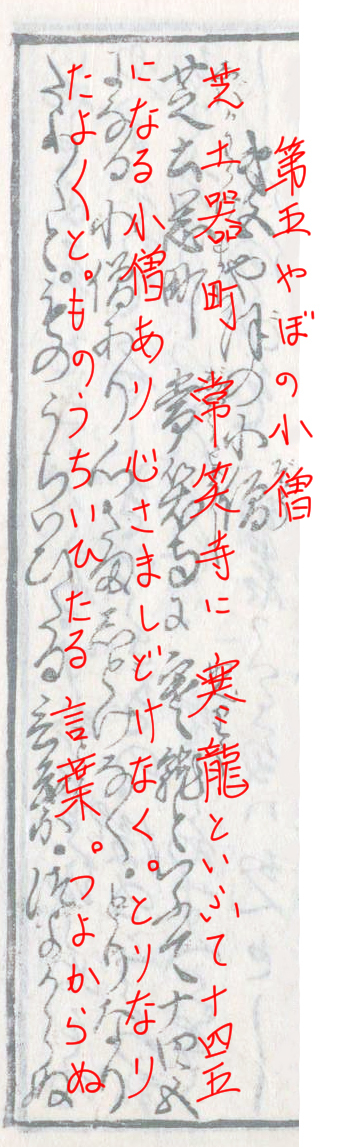 第五やぼの小僧
芝土器町 常笑寺に 寒龍といふて十四五
になる小僧あり心さましどけなく。とりなり
たよ〱と。ものうちいひたる言葉。つよからぬ